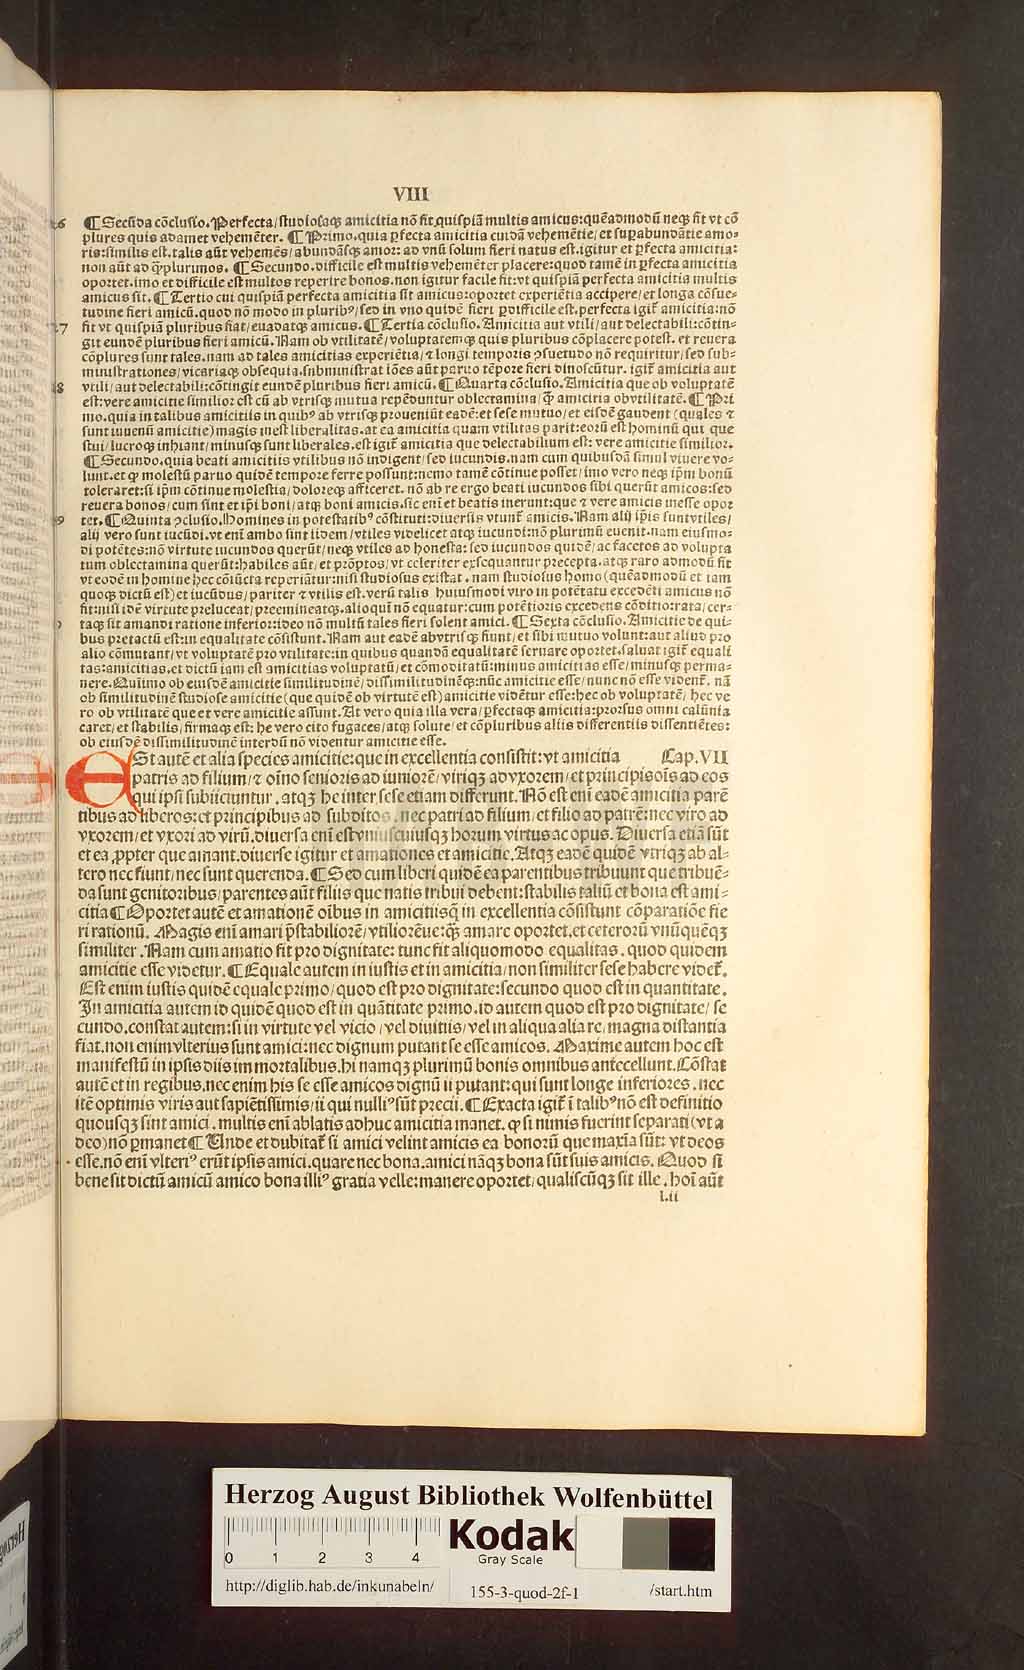 VIII
26 ¶ Secūda cōclusio. Perfecta/ studiosaqȝ amicitia nō fit quispiā multis amicus: quēadmodū neqȝ fit vt cō
plures quis adamet vehemēter. ¶ Primo. quia ꝑfecta amicitia cuidā vehemētie/ et suꝑabundātie amo-
ris: similis est. talis aūt vehemēs/ abundāsqȝ amor: ad vnū solum fieri natus est. igitur et ꝑfecta amicitia:
non aūt ad cōplurimos. ¶ Secundo. difficile est multis vehemēter placere: quod tamē in ꝑfecta amicitia
oportet. imo et difficile est multos reperire bonos. non igitur facile fit: vt quispiā perfecta amicitia multis
amicus sit. ¶ Tertio cui quispiā perfecta amicitia sit amicus: oportet experiētia accipere/ et longa cōsue-
tudine fieri amicū. quod nō modo in pluribꝰ/ sed in vno quidē fieri ꝑdifficile est. perfecta igit̄ amicitia: nō
27 fit vt quispiā pluribus fiat/ euadatqȝ amicus. ¶ Tertia cōclusio. Amicitia aut vtili/ aut delectabili: cōtin-
git eundē pluribus fieri amicū. Nam ob vtilitatē/ voluptatemqȝ quis pluribus cōplacere potest. et reuera
cōplures sunt tales. nam ad tales amicitias experiētia/ ⁊ longi temporis ꝯsuetudo nō requiritur/ sed sub-
ministrationes/ vicariaqȝ obsequia. subministrat iōes aūt paruo tēpore fieri dinoscūtur. igit̄ amicitia aut
28 vtili/ aut delectabili: cōtingit eundē pluribus fieri amicū. ¶ Quarta cōclusio. Amicitia que ob voluptatē
est: vere amicitie similior est cū ab vtrisqȝ mutua repēduntur oblectamina/ ꝙ̄ amicitia obvtilitatē. ¶ Pri
mo. quia in talibus amicitiis in quibꝰ ab vtrisqȝ proueniūt eadē: et sese mutuo/ et eisdē gaudent (quales ⁊
sunt iuuenū amicitie) magis inest liberalitas. at ea amicitia quam vtilitas parit: eorū est hominū qui que
stui/ lucroqȝ inhiant/ minusqȝ sunt liberales. est igit̄ amicitia que delectabilium est: vere amicitie similior.
¶ Secundo. quia beati amicitiis vtilibus nō indigent/ sed iucundis. nam cum quibusdā simul viuere vo-
lunt. et ꝙ molestū paruo quidē tempore ferre possunt: nemo tamē cōtinue posset/ imo vero neqȝ ip̄m bonū
toleraret: si ip̄m cōtinue molestia/ doloreqȝ afficeret. nō ab re ergo beati iucundos sibi querūt amicos: sed
reuera bonos/ cum sint et ip̄i boni/ atqȝ boni amicis. sic enī et beatis inerunt: que ⁊ vere amicis inesse opor
29 tet. ¶ Quinta ꝯclusio. Homines in potestatibꝰ cōstituti: diuersis vtunt̄ amicis. Nam alij ip̄is sunt vtiles/
alij vero sunt iucūdi. vt enī ambo sint iidem/ vtiles videlicet atqȝ iucundi: nō plurimū euenit. nam eiusmo-
di potētes: nō virtute iucundos querūt/ neqȝ vtiles ad honesta: sed iucundos quidē/ ac facetos ad volupta
tum oblectamina querūt: habiles aūt/ et prōptos/ vt celeriter exsequantur precepta. atqȝ raro admodū fit
vt eodē in homine hec cōiūcta reperiātur: nisi studiosus existat. nam studiosus homo (quēadmodū et iam
quoqȝ dictū est) et iucūdus/ pariter ⁊ vtilis est. verū talis huiusmodi viro in potētatu excedēti amicus nō
fit: nisi idē virtute preluceat/ preemineatqȝ. alioqui nō equatur: cum potētioris excedens cōditio: rata/ cer-
taqȝ sit amandi ratione inferior: ideo nō multū tales fieri solent amici. ¶ Sexta cōclusio. Amicitie de qui-
bus pretactū est: in equalitate cōsistunt. Nam aut eadē abvtrisqȝ fiunt/ et sibi mutuo volunt: aut aliud pro
alio cōmutant/ vt voluptatē pro vtilitate: in quibus quandā equalitatē seruare oportet. saluat igit̄ equali
tas: amicitias. et dictū iam est amicitias voluptatū/ et cōmoditatū: minus amicitias esse/ minusqȝ perma-
nere. Quinimo ob eiusdē amicitie similitudinē/ dissimilitudinēqȝ: nūc amicitie esse/ nunc nō esse vident̄. nā
ob similitudinē studiose amicitie (que quidē ob virtutē est) amicitie vidētur esse: hec ob voluptatē/ hec ve
ro ob vtilitatē que et vere amicitie assunt. At vero quia illa vera/ ꝑfectaqȝ amicitia: prorsus omni calūnia
caret/ et stabilis/ firmaqȝ est: he vero cito fugaces/ atqȝ solute/ et cōpluribus aliis differentiis dissentiētes:
ob eiusdē dissimilitudinē interdū nō videntur amicitie esse.
ESt autē et alia species amicitie: que in excellentia consistit: vt amicitia Cap. VII
patris ad filium/ ⁊ oīno senioris ad iuniorē/ viriqȝ ad vxorem/ et principis oīs ad eos
qui ipsi subiiciuntur. atqȝ he inter sese etiam differunt. Nō est enī eadē amicitia parē
tibus ad liberos: et principibus ad subditos. nec patri ad filium/ et filio ad patrē: nec viro ad
vxorem/ et vxori ad virū. diuersa enī est vniuscuiusqȝ horum virtus ac opus. Diuersa etiā sūt
et ea ꝓpter que amant. diuerse igitur et amationes et amicitie. Atqȝ eadē quidē vtriqȝ ab al-
tero nec fiunt/ nec sunt querenda. ¶ Sed cum liberi quidē ea parentibus tribuunt que tribuē-
da sunt genitoribus/ parentes aūt filiis que natis tribui debent: stabilis taliū et bona est ami-
citia ¶ Oportet autē et amationē oībus in amicitiisq̄ in excellentia cōsistunt cōparatiōe fie
ri rationū. Magis enī amari p̄stabiliorē/ vtiliorēue: ꝙ̄ amare oportet. et ceterorū vnūquēqȝ
similiter. Nam cum amatio fit pro dignitate: tunc fit aliquomodo equalitas. quod quidem
amicitie esse videtur. ¶ Equale autem in iustis et in amicitia/ non similiter sese habere videt̄.
Est enim iustis quidē equale primo/ quod est pro dignitate: secundo quod est in quantitate.
In amicitia autem id quidē quod est in quātitate primo. id autem quod est pro dignitate/ se
cundo. constat autem: si in virtute vel vicio/ vel diuitiis/ vel in aliqua alia re/ magna distantia
fiat. non enim vlterius sunt amici: nec dignum putant se esse amicos. Maxime autem hoc est
manifestū in ipsis diis immortalibus. hi namqȝ plurimū bonis omnibus antecellunt. Cōstat
autē et in regibus. nec enim his se esse amicos dignū ii putant: qui sunt longe inferiores. nec
itē optimis viris aut sapiētissimis/ ii qui nulliꝰ sūt precii. ¶ Exacta igit̄ ī talibꝰ nō est definitio
quousqȝ sint amici. multis enī ablatis adhuc amicitia manet. ꝙ si nimis fuerint separati (vt a
deo) nō ꝑmanet ¶ Unde et dubitat̄ si amici velint amicis ea bonorū que maxīa sūt: vt deos
esse. nō enī vlteriꝰ erūt ipsis amici. quare nec bona. amici nāqȝ bona sūt suis amicis. Quod si
bene sit dictū amicū amico bona illiꝰ gratia velle: manere oportet/ qualiscūqȝ sit ille. hoī aūt
l. ii
Herzog August Bibliothek Wolfenbüttel
0 1 2 3 4
Kodak
Gray Scale
http://diglib.hab.de/inkunabeln/ 155-3-quod-2f-1 /start.htm